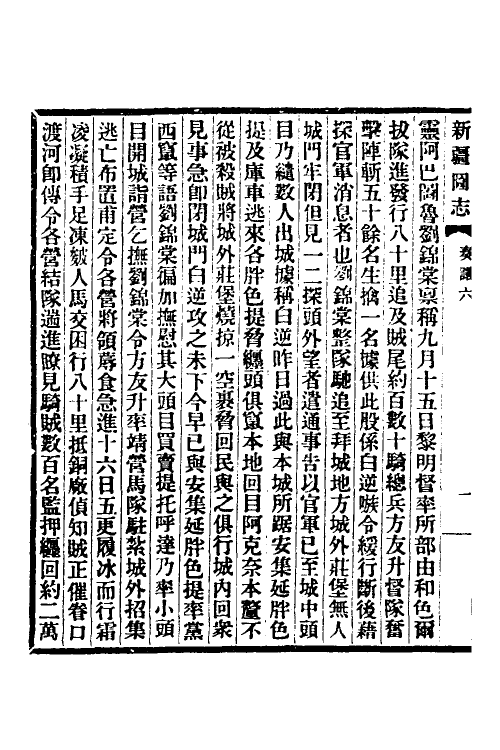 新疆圖志 奏議六 一
靈阿巴圖魯劉錦棠稟稱九月十五日黎明督率所部由和色爾
拔隊進發行八十里追及賊尾約百數十騎總兵方友升督隊奮
擊陣斬五十餘名生擒一名據供此股係白逆嗾令緩行斷後藉
探官軍消息者也劉錦棠整隊馳追至拜城地方城外莊堡無人
城門牢閉但見一二探頭外望者遣通事告以官軍已至城中頭
目乃縋數人出城據稱白逆昨日過此與本城所踞安集延胖色
提及庫車逃來各胖色提脅纏頭俱竄本地回目阿克奈本釐不
從被殺賊將城外莊堡燒掠一空裹脅回民與之俱行城內回衆
見事急卽閉城門白逆攻之未下今早已與安集延胖色提率黨
西竄等語劉錦棠徧加撫慰其大頭目買賣提托呼達乃率小頭
目開城詣營乞撫劉錦棠令方友升率靖營馬隊駐紮城外招集
逃亡布置甫定令各營將領蓐食急進十六日五更履冰而行霜
凌凝積手足凍皴人馬交困行八十里抵銅廠偵知賊正催眷口
渡河卽傳令各營結隊遄進瞭見騎賊數百名監押纏回約二萬